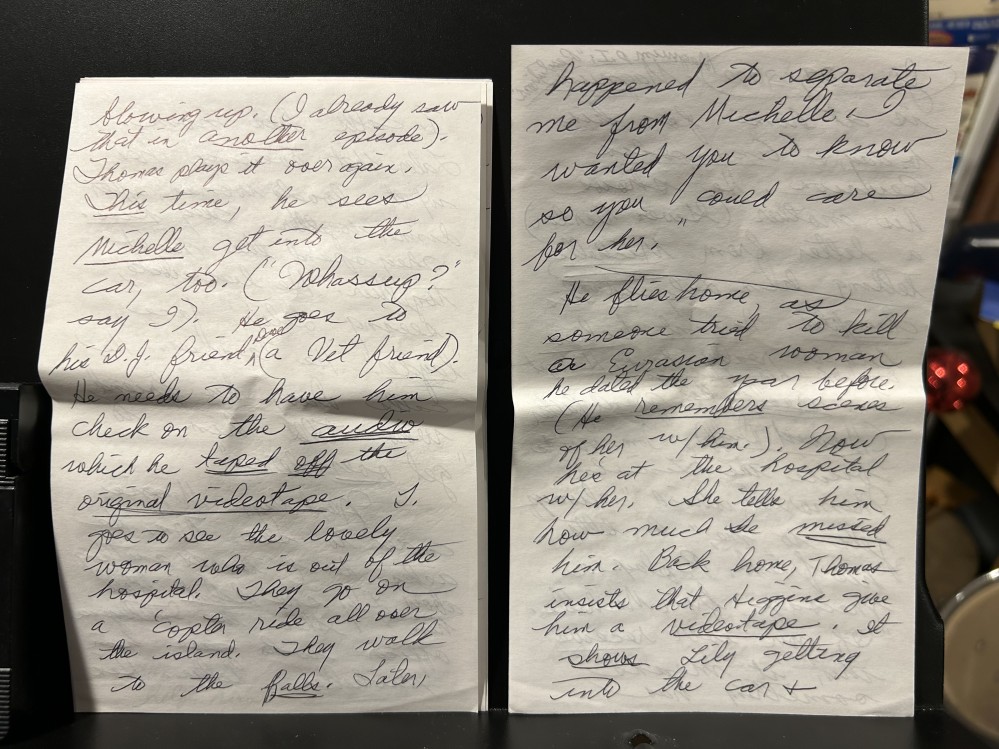 blowing up. (I already saw
that in another episode).
Thomas plays it over again.
This time, he sees
Michelle get into the
car, too. ("Whassup?"
say I?). He goes to
his D.J. friend, (a Vet friend).
He needs to have him
check on the audio
which he taped off the
original videotape. T.
goes to see the lovely
woman who is out of the
hospital. They go on
a 'copter ride all over
the island. They walk
to the falls. Later,
happened to separate
me from Michelle. I
wanted you to know
so you could care
for her."
He flies home, as
someone tried to kill
a Eurasion woman
he dated the year before
(He remembers scenes
of her w/ him.). Now
he's at the hospital
w/ her. She tells him
how much she missed
him. Back home, Thomas
insists that Higgins give
him a videotape. It
shows Lily getting
into the car +